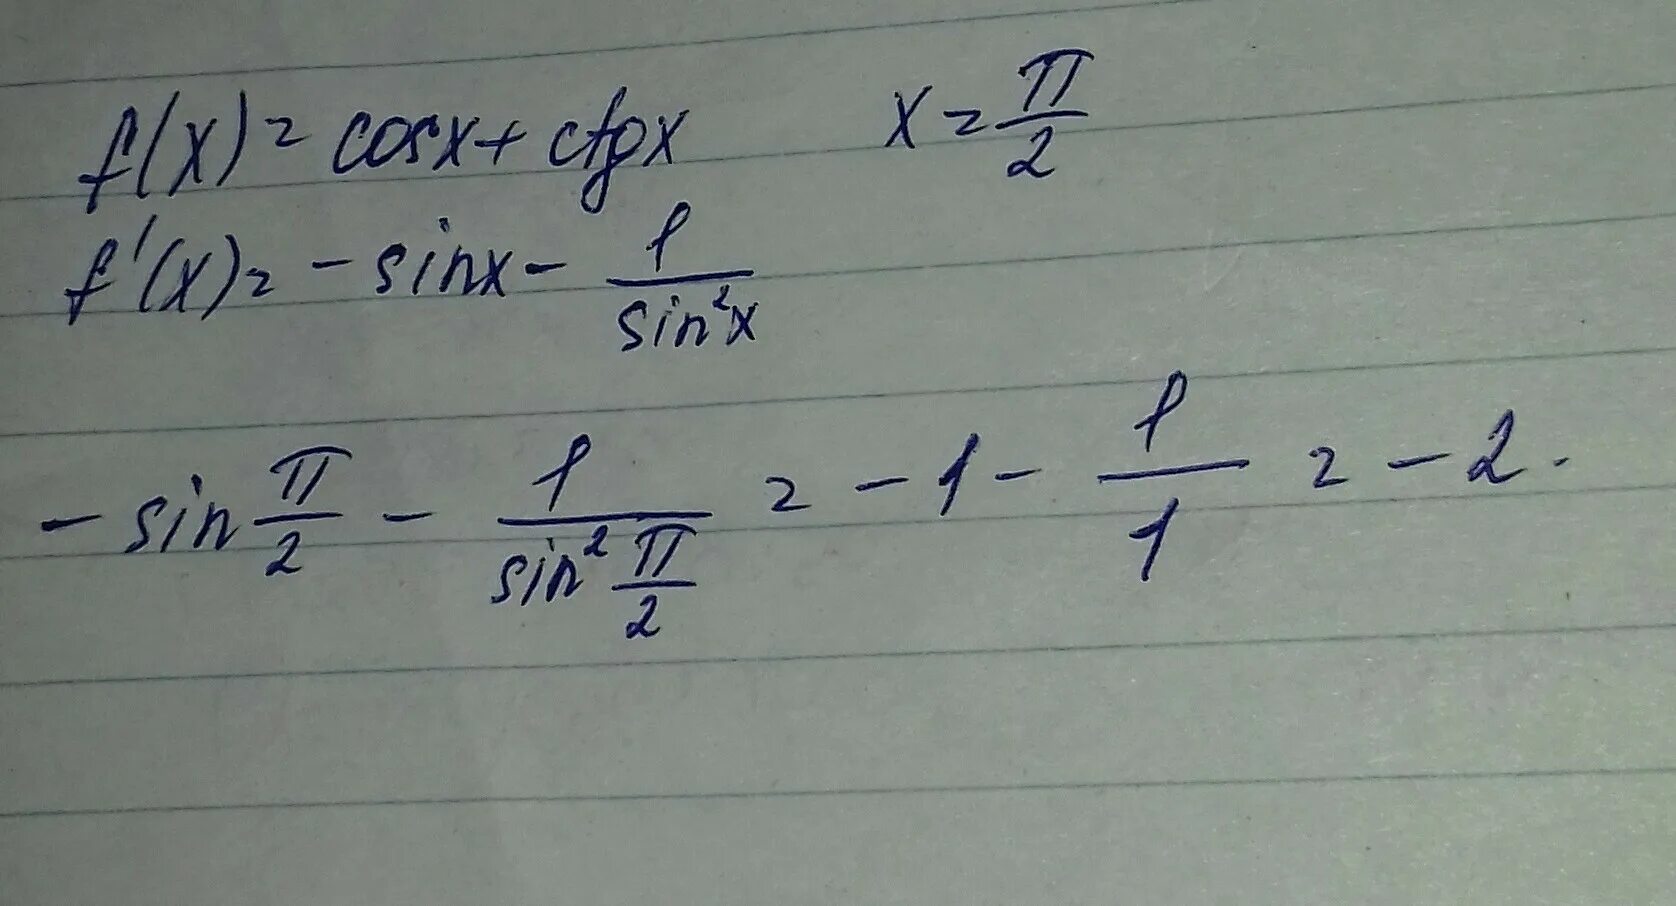 f(x) = cosx + ctgx x = π/2
f'(x) = - sinx - 1/sin²x
- sin π/2 - 1/sin² π/2 = - 1 - 1/1 = - 2.